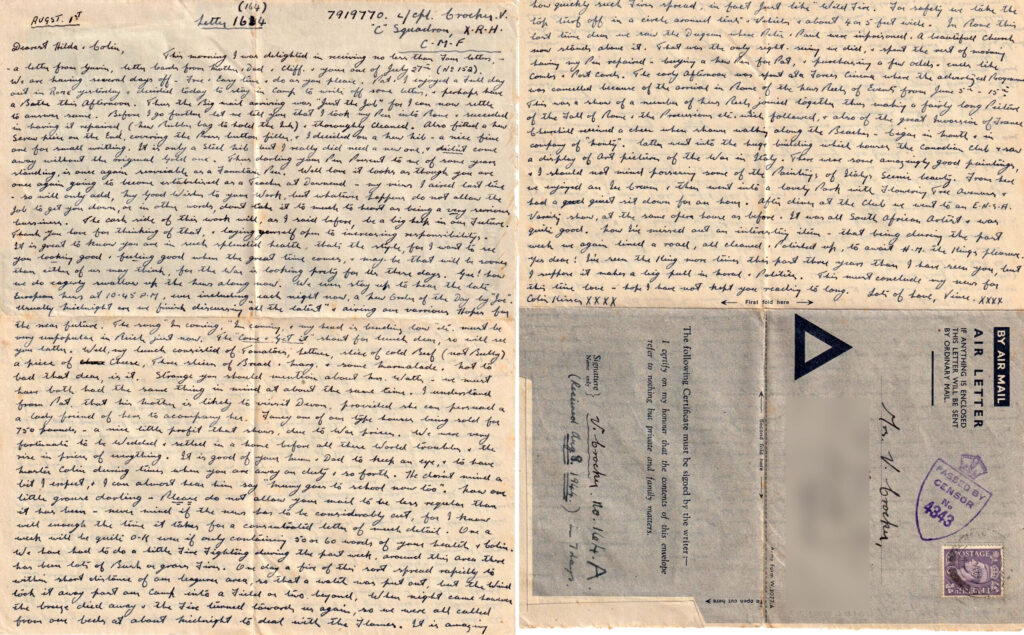 AUGST. 1st
(164)
Letter 1634
7919770. L/Cpl. Crocker. V.
"C" Squadron, X.R.H.
C-M-F
Dearest Hilda & Colin,
This morning I was delighted in receiving no less than Four letters, -
a letter from Gwin, letter cards from Mother, Dad, & Cliff, & yours one of July 27th (No 152).
We are having several days off - Free & Easy time, do as you please, & Pat & I enjoyed a Full day
out in Rome yesterday, & decided today to stay in Camp to write off some letters, & perhaps have
a Bathe this Afternoon. Thus the Big mail arriving was "Just the Job" for I can now settle
to answer some. Before I go further let me tell you that I took my Pen into Rome & succeeded
in having it repaired (new rubber bag to hold the ink) & thoroughly cleaned. Also fitted a new
Screw piece on the End covering the Penns button filler, & I decided on a new nib, a nice fine
one for small writing. It is only a Steel nib but I really did need a new one, & didn't come
away without the original Gold one. Thus darling your Pen Present to me of some years
standing, is once again serviceable as a Fountain Pen. Well love it looks as though you are
once again going to become established as a Teacher at Dunmead - my views I aired last time
- so will only add, My Good Wishes to your Work, but whatever happens do not allow the
Job to get you down, or in other words don't take it to much to heart as being a very serious
business. The cash side of this work will, as I said before be a big help in our Future.
Thank you love for thinking of that, & laying yourself open to increasing responsibility.
It is great to know you are in such splendid health, thats the style, for I want to see
you looking good & feeling good when the great time comes, & may be that will be sooner
than either of us may think, for the War is looking pretty for us these days. Gee! how
we do eagerly swallow up the news along now. We even stay up to hear the late
European news at 10-45 P.M, ever including each night now, a new Order of the Day by "Joe".
Usually midnight ere we finish discussing all the latest & airing our various Hopes for
the near future. The song "I'm coming, I'm coming, & my head is bending low etc, must be
very unpopular in Reich just now. The "Come & Get it" shout for lunch dear, so will see
you later. Well, my lunch consisted of Tomatoes, lettuce, slice of cold Beef (not Bully)
a piece of Cheese, Two slices of Bread & marg, & some marmalade. Not to
bad that dear, is it. Strange you should mention about Mrs. Watts - we must
have both had the same thing in mind at about the same time. I understand
from Pat, that his Mother is likely to visit Devon, provided she can persuade a
a lady friend of hers to accompany her. Fancy one of our type houses being sold for
750 pounds, - a nice little profit that shows, due to War prices. We were very
fortunate to be Wedded & settled in a home before all these World troubles & the
rise in price of everything. It is good of your Mum & Dad to keep an eye, & to have
master Colin during times when you are away on duty & so forth. He doesn't mind a
bit I expect, & I can almost hear him say "Mummy goes to school now too". Now one
little grouse darling - Please do not allow your mail to be less regular than
it has been - never mind if the news has to be considerably cut, for I know
well enough the time it takes for a concentrated letter of much detail. One a
week will be quite O.K even if only containing 50 or 60 words of your health, & Colin.
We have had to do a little Fire Fighting during the past week, around this area there
has been lots of Bush or grass Fires. One day a fire of this sort spread rapidly to
within short distance of our leaguer area, so that a watch was put out, but the Wind
took it away past our Camp into a Field or two beyond, When night came however
the breeze died away & the Fire turned towards us again, so we were all called
from our beds at about midnight to deal with the Flames. It is amazing
how quickly such Fires spread, in fact just like "Wild Fire". For safety we take the
top turf off in a circle around tents & Vehicles & about 4 or 5 feet wide. In Rome this
last time dear we saw the Dungeon where Peter & Paul were imprisoned. A beautiful Church
now stands above it. That was the only sight-seeing we did, & spent the rest of morning
having my Pen repaired - buying a new Pen for Pat, & purchasing a few odds & ends like
Combs & Post Cards. The early Afternoon was spent at a Forces Cinema where the advertised Programme
was cancelled because of the arrival in Rome of the News Reels of Events from June 5th - 15th.
This was a show of a number of News Reels, joined together thus making a fairly long Picture
of the Fall of Rome, & the Processions etc. which followed, & also of the great Invasion of France
Churchill received a cheer when shown walking along the Beaches - began in mouth, & in
company of "Monty". Later went into the huge building which houses the Canadian Club & saw
a display of Art picture of the War in Italy. There was some amazingly good paintings,
& I should not mind possessing some of the Paintings of Italys Scenic beauty. From here
we enjoyed an Ice-cream & then went into a lovely Park with Flowering Tree Avenues &
had a quiet sit down for an hour. After dinner at the Club we went to an E.N.S.A.
Variety show, at the same opera house as before. It was all South African Artists & was
quite good. Now I've missed out an interesting item - that being during the past
week we again lined a road, all cleaned & Polished up, to await H.M. the Kings pleasure.
Yes dear! I've seen the King more times this past three years than I have seen you, but
I suppose it makes a big pull in moral & Politics. This must conclude my news for
this time love - hope I have not kept you reading to long. Lots of Love, Vine. XXXX
Colin Kisses XXXX
First fold here
The following Certificate must be signed by the writer:—
I certify on my honour that the contents of this envelope
refer to nothing but private and family matters.
Signature
Name only
V. Crocker No. 164. A
(Received Aug 8. 1944) — 7 days.
Second fold here
To open cut here
Army Form W.3077A
BY AIR MAIL
AIR LETTER
IF ANYTHING IS ENCLOSED
THIS LETTER WILL BE SENT
BY ORDINARY MAIL
Mrs. V. Crocker,
PASSED BY
CENSOR
No
4343
POSTAGE